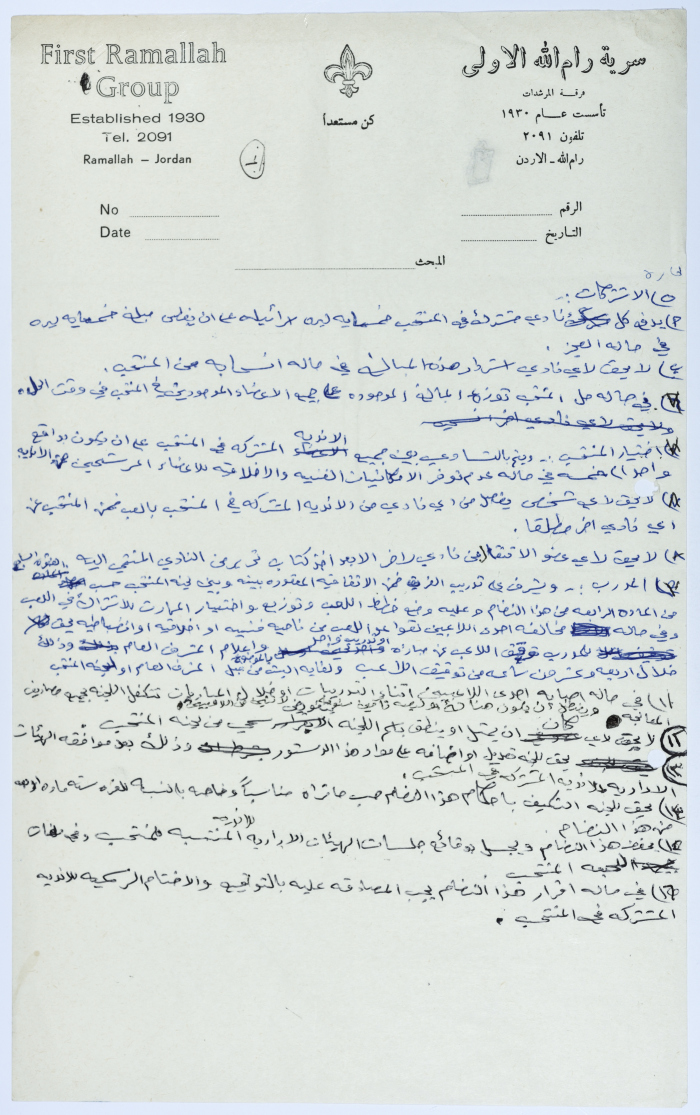 First Ramallah
Group
Established 1930
Tel. 2091
Ramallah – Jordan
كن مستعداً
سرية رام الله الاولى
فرقة المرشدات
تأسست عام ١٩٣٠
تلفون ٢٠٩١
رام الله - الاردن
No
Date
الرقم
التاريخ
المبحث
٥) الاشتراكات :-
٢) يدفع كل نادي مشترك في المنتخب خمسمايه ليره اسرائيليه على ان يغطى مبلغ خمسمايه ليره
في حاله العجز .
٤) لا يحق لاي نادي استرداد هذه المبالغ في حاله انسحابه من المنتخب .
في حاله حل المنتخب توزع المبالغ الموجوده على جميع الاعضاء الموجودين في المنتخب في وقت الحل .
ولا يحق لاي نادي اخر
اختيار المنتخب :- ويتم بالتساوي بين جميع الانديه المشتركه في المنتخب على ان يكون بواقع
خمسه في حاله عدم توفر الامكانيات الفنيه والاخلاقيه للاعضاء المرشحين من الانديه
٨) لا يحق لاي شخص يفصل من اي نادي من الانديه المشتركه في المنتخب باللعب ضمن المنتخب عن
اي نادي اخر مطلقا .
لا يحق لاي عضو الانتقال من نادي لاخر الا بعد اخذ كتاب تحرير من النادي المنتمي اليه
المدرب :- ويشرف على تدريب الفريق ضمن الاتفاقيه المعقوده بينه وبين لجنه المنتخب حسب
من الماده الرابعه من هذا النظام وعليه وضع خطط اللعب وتوزيع واختيار المهارت للاشتراك في اللعب
وفي حاله مخالفه احدى اللاعبين لقواعد اللعب من ناحيه فنيه او اخلاقيه او انضباطيه يحق
للمدرب توقيف اللاعب عن مباراه واعلام المشرف العام وذلك
خلال اربعه وعشرين ساعه من توقيف اللاعب ولغايه البت من قبل المشرف العام او لجنه المنتخب
١١) في حاله اصابه احدى اللاعبين اثناء التدريبات او خلال المباريات تتكفل اللجنه بجميع مصاريف
١٢) لا يحق لاي كان ان يمثل او ينطق باسم اللجنه من لجنه المنتخب
يحق للجنه تعديل او اضافه على مواد هذا الدستور وذلك بعد موافقه الهيئات
الاداريه للانديه المشتركه في المنتخب .
يحق للجنه التكيف باحكام هذا النظام حسب ما تراه مناسباً وخاصه بالنسبه للفقره سته ماده
من هذا النظام
يحفظ هذا النظام ويسجل بوقائع جلسات الهيئات الاداريه للانديه المنتسبه للمنتخب وفي ملفات
المنتخب
في حاله اقرار هذا النظام يجب المصادقه عليه بالتوقيع والاختام الرسميه للانديه
المشتركه في المنتخب .